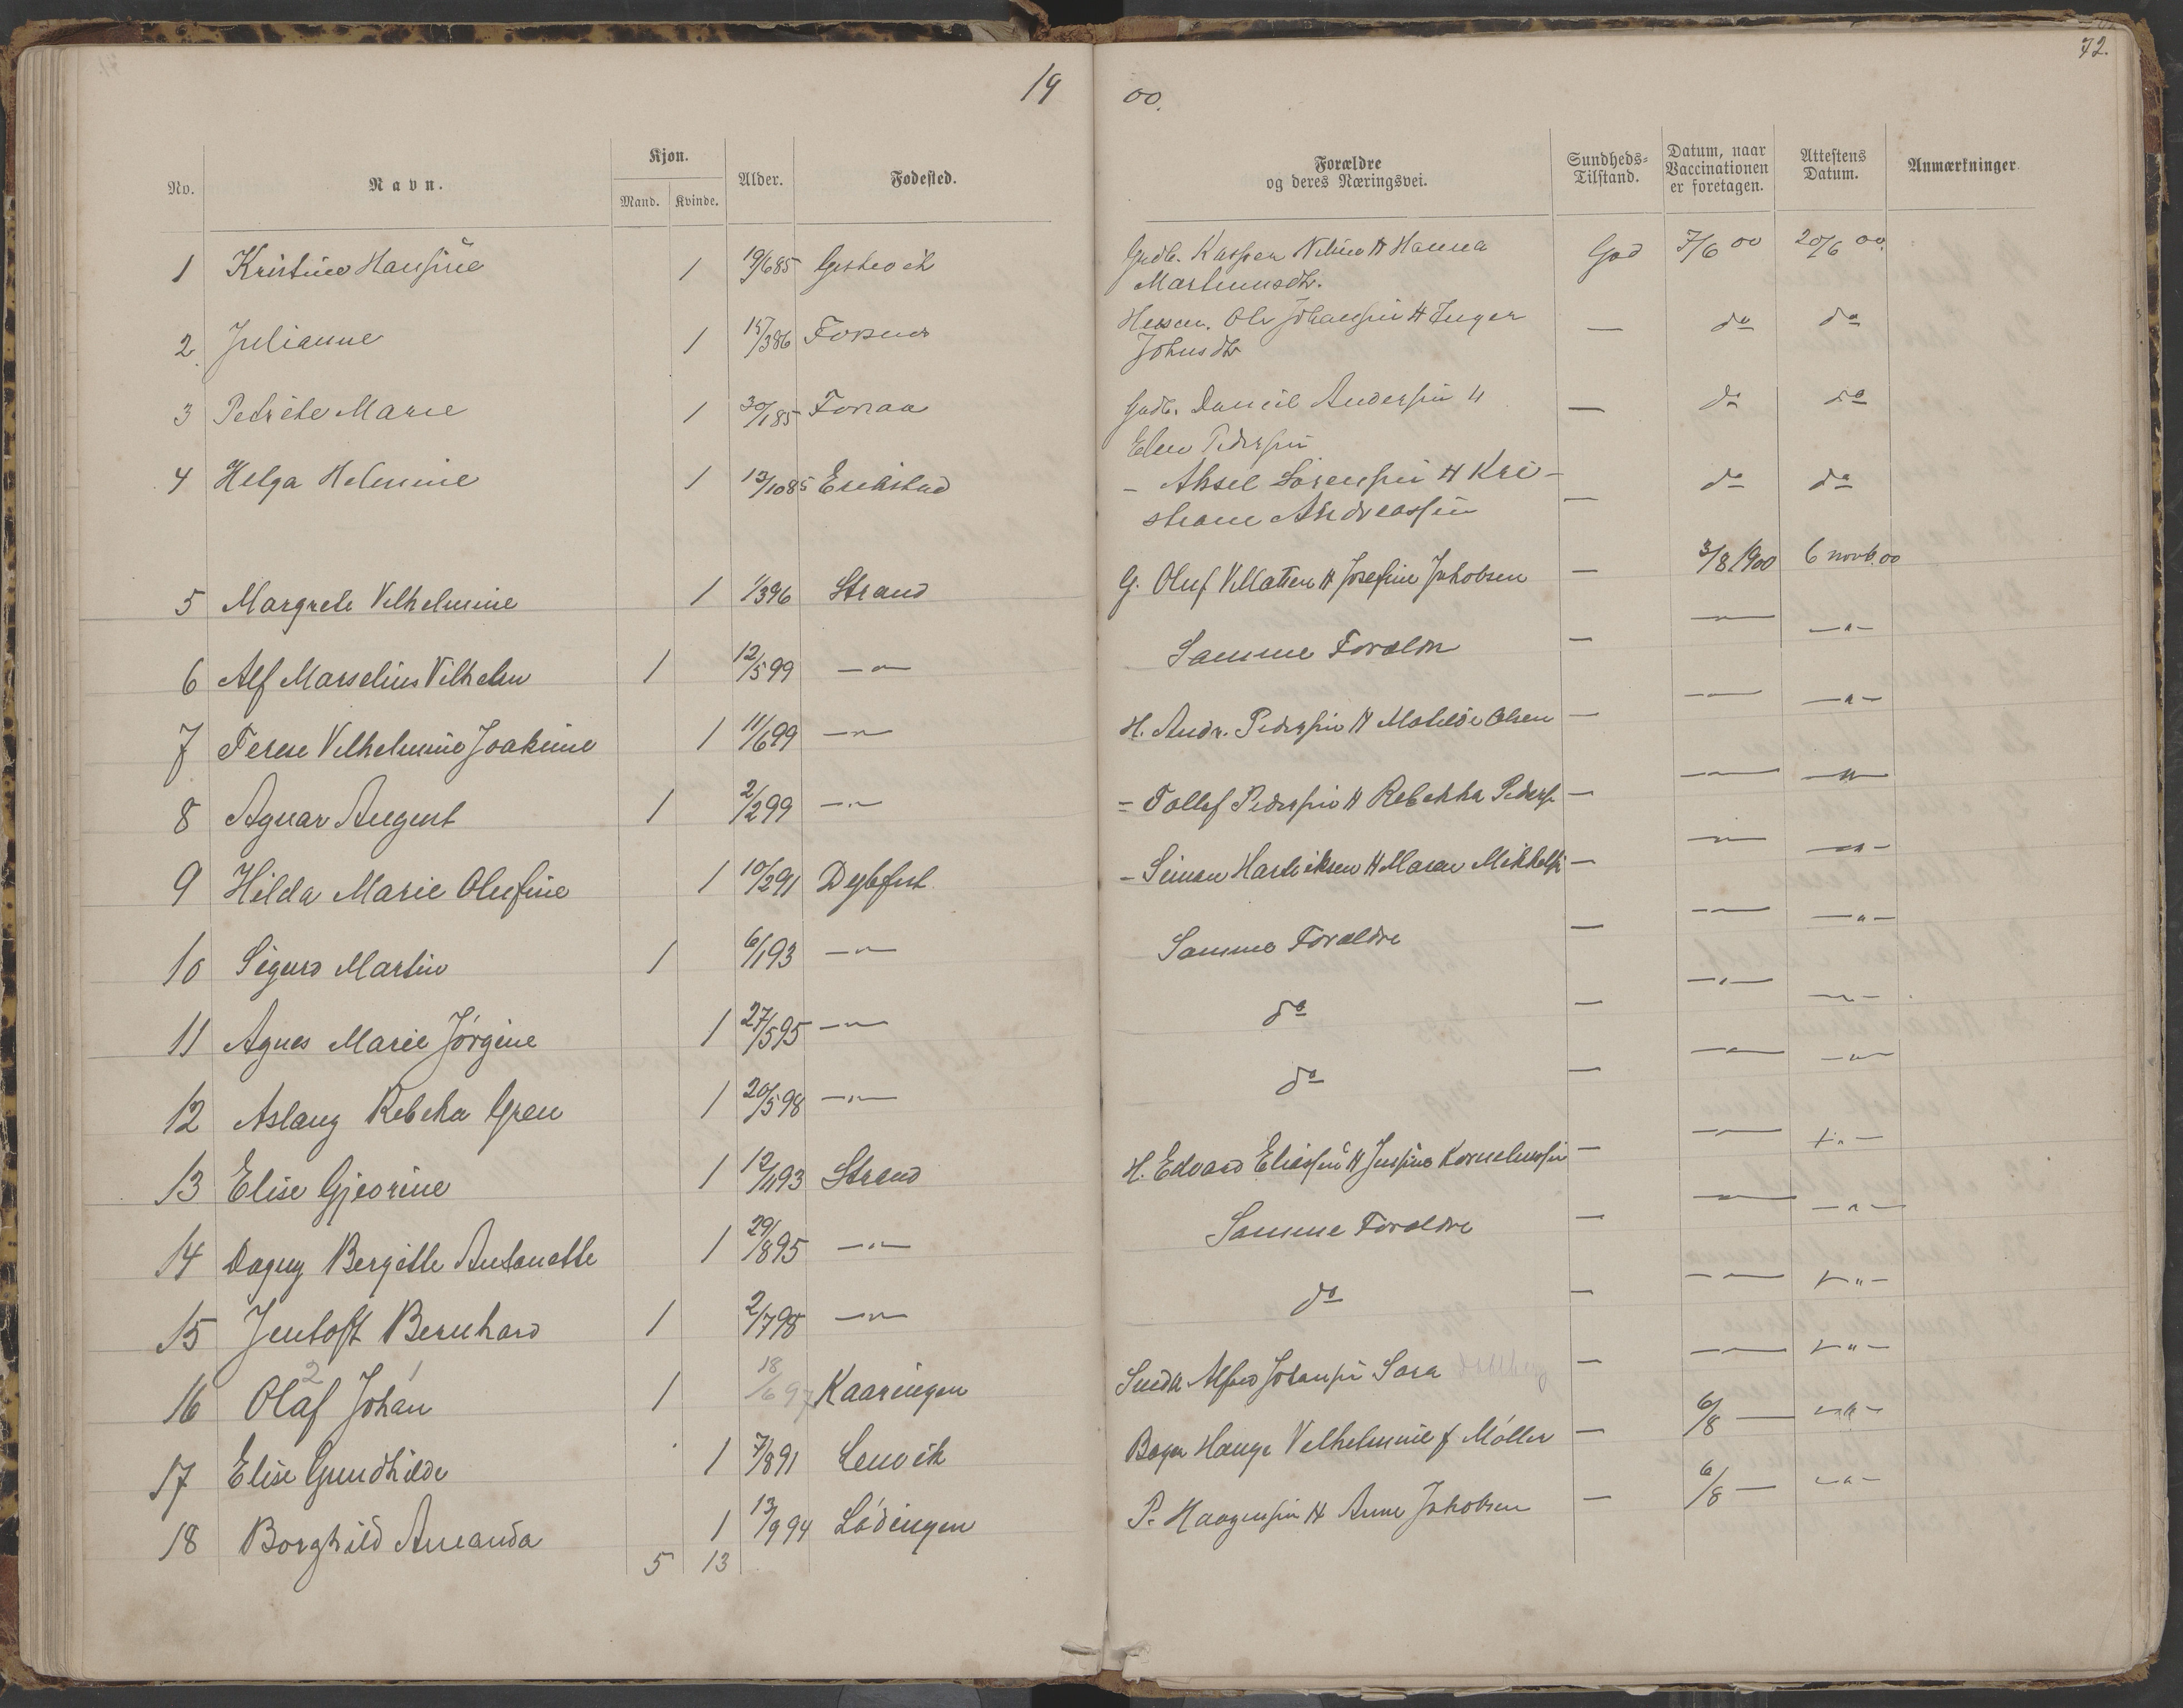 72.
19 00.
No. Navn. Kjøn. Mand. Kvinde. Alder. Fødested. Forældre og deres Næringsvei. Sundheds-Tilstand. Datum, naar Vaccinationen er foretagen. Attestens Datum. Anmærkninger.
1 Kristine Hansine 1 19/6 85 God 7/6 00 20/6 00.
Martinusdtr.
2. Julianne 1 15/3 86 Ole Johansen & Inger — do do
Johnsdtr
3 Petrikke Marie 1 30/1 85 Foraa Gadb. Daniel Andersen & — do do
Elen Pedersen
4 Helga Helmine 1 13/10 85 Erikstad - Aksel Sørensen & Kri- — do do
stiane Andreassen
5 Margrete Vilhelmine 1 1/3 96 Strand G. Oluf & Josefine Jakobsen — 3/8 1900 6 novb. 00
6 Alf Marselius Vilhelm 1 12/5 99 —"— Samme Foreldre — —"— —"—
7 Terese Vilhelmine Joakime 1 11/6 99 —"— H. Andr. Pedersen & Matilde Olsen — —"— —"—
8 Agnar August 1 2/2 99 —"— = Tollef Pedersen & Rebekka Peders. — —"— —"—
9 Hilda Marie Olufine 1 10/2 91 Dybfest - Simon & Maren Mikkels. — —"— —"—
10 Sigurd Martin 1 6/1 93 —"— Samme Foreldre — —"— —"—
11 Agnes Marie Jørgine 1 27/5 95 —"— do — —"— —"—
12 Aslaug Rebeka 1 20/5 98 —"— do — —"— —"—
13 Elise Gjeorine 1 12/11 93 Strand H. Edvard Eliassen & Korneliussen — —"— —"—
14 Dagny Bergitte Antonette 1 29/8 95 —"— Samme Foreldre — —"— —"—
15 Jentoft Bernhard 1 2/7 98 —"— do — —"— —"—
16 Olaf 2 Johan 1 1 18/6 97 Kaaringen Alfred Johansen Sara — —"— —"—
17 Elise Gundhilde 1 7/8 91 Lenvik Hauge Vilhelmine f Møller — 6/8 — —"—
18 Borghild Amanda 1 13/9 94 Lødingen P. Haagensen & Anne Jakobsen — 6/8 — —"—
5 13